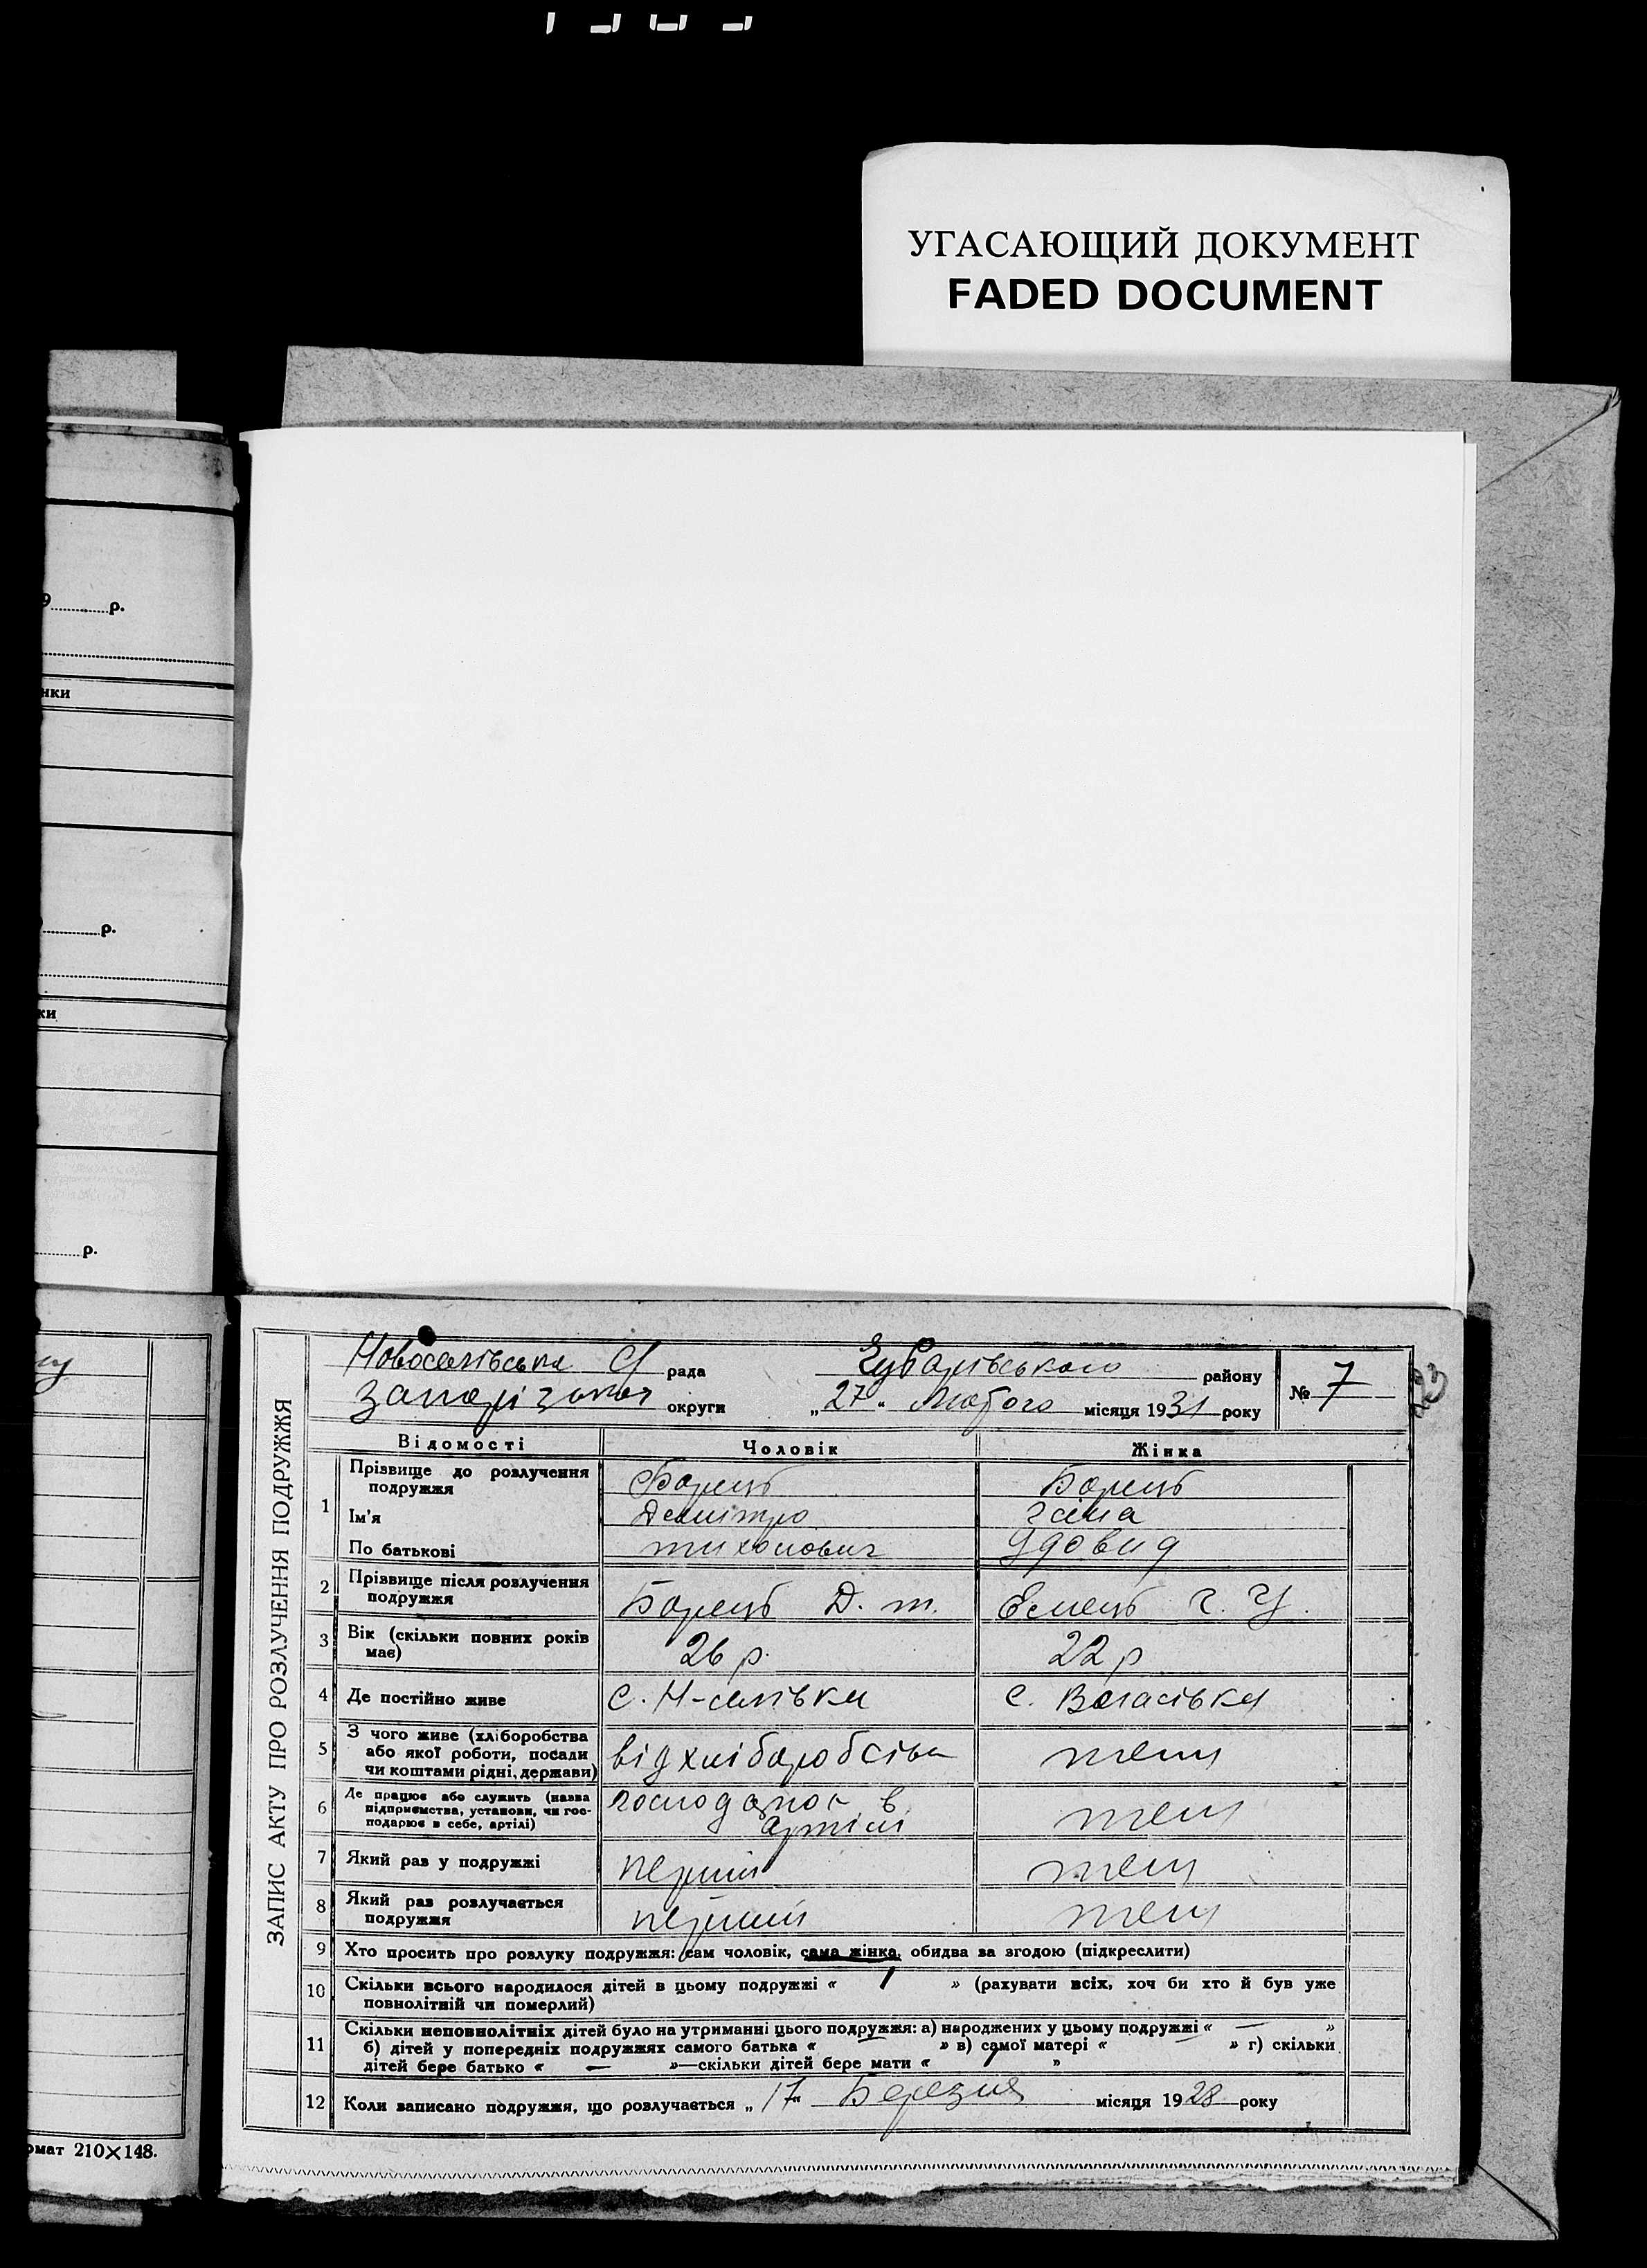 УГАСАЮЩИЙ ДОКУМЕНТ
FADED DOCUMENT
9 р.
нки
р.
ки
р.
рмат 210×148.
ЗАПИС АКТУ ПРО РОЗЛУЧЕННЯ ПОДРУЖЖЯ
Новоселівська С/ рада району
округи „27“ Лютого місяця 1931 року № 7
23
Відомості Чоловік Жінка
1 Прізвище до розлучення подружжя Борець Борець
Ім'я Демітро Ганна
По батькові тихонович
2 Прізвище після розлучення подружжя Борець Д. т. Ємець Г. У.
3 Вік (скільки повних років має) 26 р. 22 р
4 Де постійно живе с. Н-селівка с.
5 З чого живе (хліборобства або якої роботи, посади чи коштами рідні, держави) від хліборобства теж
6 Де працює або служить (назва підприємства, установи, чи господарює в себе, артілі) в артілі теж
7 Який раз у подружжі перший теж
8 Який раз розлучається подружжя перший теж
9 Хто просить про розлуку подружжя: сам чоловік, сама жінка, обидва за згодою (підкреслити)
10 Скільки всього народилося дітей в цьому подружжі « 1 » (рахувати всіх, хоч би хто й був уже
повнолітній чи померлий)
11 Скільки неповнолітніх дітей було на утриманні цього подружжя: а) народжених у цьому подружжі « — »
б) дітей у попередніх подружжях самого батька « — » в) самої матері « — » г) скільки
дітей бере батько « — »—скільки дітей бере мати « 1 »
12 Коли записано подружжя, що розлучається „17“ Березня місяця 1928 року